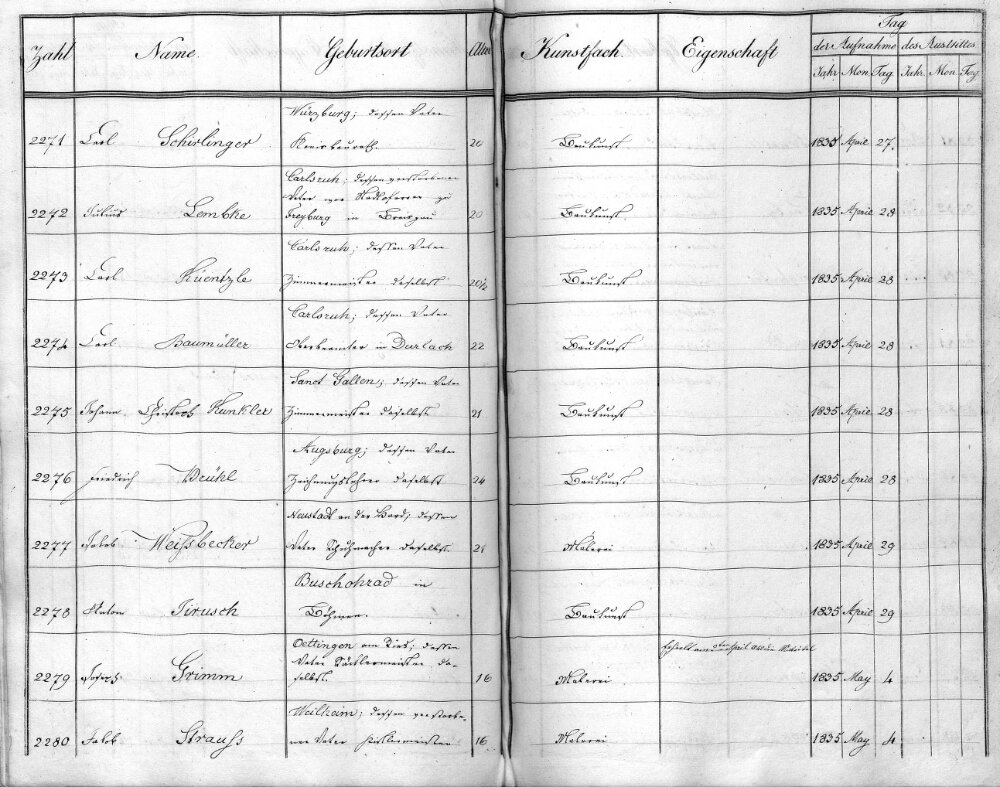 Zahl Name. Geburtsort Alter Kunstfach. Eigenschaft Tag
der Aufnahme des Austrittes
Jahr Mon Tag Jahr. Mon Tag
Würzburg; dessen Vater
2271 Carl Schirlinger Kreisbaurath. 20 Baukunst 1835 April 27.
Carlsruh; dessen verstorbener
Vater war zu
2272 Julius Lembke Freyburg in Breisgau 20 Baukunst 1835 April 28
Carlsruh; dessen Vater
2273 Carl Küentzle Zimmermeister daselbst 20½ Baukunst 1835 April 28
Carlsruh; dessen Vater
2274 Carl Baumüller Oberbeamter in Durlach 22 Baukunst 1835 April 28
Sanct Gallen; dessen Vater
2275 Johann Christoph Kunkler Zimmermeister daselbst 21 Baukunst 1835 April 28
Augsburg; dessen Vater
2276 Friedrich Zeichnungslehrer daselbst 24 Baukunst 1835 April 28
Neustadt an der dessen
2277 Jakob Weißbecker Vater Schuhmacher daselbst. 21 Malerei 1835 April 29
Buschohrad in
2278 Anton Jirusch Böhmen. Baukunst 1835 April 29
Oettingen am Ries; dessen
Vater Säcklermeister da-
2279 Joseph Grimm selbst. 16 Malerei 1835 May 4
Weilheim; dessen verstorbe-
2280 Jakob Strauss ner Vater 16 Malerei 1835 May 4